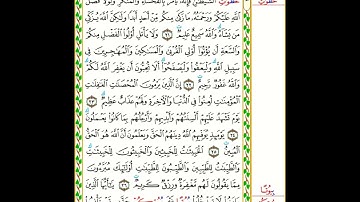 خُطُوَٰتِ
ٱلشَّيْطَٰنِ فَإِنَّهُۥ يَأْمُرُ بِٱلْفَحْشَآءِ وَٱلْمُنكَرِ وَلَوْلَا فَضْلُ
ٱللَّهِ عَلَيْكُمْ وَرَحْمَتُهُۥ مَا زَكَىٰ مِنكُم مِّنْ أَحَدٍ أَبَدًا وَلَٰكِنَّ ٱللَّهَ يُزَكِّى
مَن يَشَآءُ وَٱللَّهُ سَمِيعٌ عَلِيمٌ ٢١ وَلَا يَأْتَلِ أُو۟لُوا۟ ٱلْفَضْلِ مِنكُمْ
وَٱلسَّعَةِ أَن يُؤْتُوٓا۟ أُو۟لِى ٱلْقُرْبَىٰ وَٱلْمَسَٰكِينَ وَٱلْمُهَٰجِرِينَ فِى
سَبِيلِ ٱللَّهِ وَلْيَعْفُوا۟ وَلْيَصْفَحُوٓا۟ أَلَا تُحِبُّونَ أَن يَغْفِرَ ٱللَّهُ لَكُمْ
وَٱللَّهُ غَفُورٌ رَّحِيمٌ ٢٢ إِنَّ ٱلَّذِينَ يَرْمُونَ ٱلْمُحْصَنَٰتِ ٱلْغَٰفِلَٰتِ
ٱلْمُؤْمِنَٰتِ لُعِنُوا۟ فِى ٱلدُّنْيَا وَٱلْءَاخِرَةِ وَلَهُمْ عَذَابٌ عَظِيمٌ ٢٣
يَوْمَ تَشْهَدُ عَلَيْهِمْ أَلْسِنَتُهُمْ وَأَيْدِيهِمْ وَأَرْجُلُهُم بِمَا كَانُوا۟ يَعْمَلُونَ
٢٤ يَوْمَئِذٍ يُوَفِّيهِمُ ٱللَّهُ دِينَهُمُ ٱلْحَقَّ وَيَعْلَمُونَ أَنَّ ٱللَّهَ هُوَ ٱلْحَقُّ
ٱلْمُبِينُ ٢٥ ٱلْخَبِيثَٰتُ لِلْخَبِيثِينَ وَٱلْخَبِيثُونَ لِلْخَبِيثَٰتِ
وَٱلطَّيِّبَٰتُ لِلطَّيِّبِينَ وَٱلطَّيِّبُونَ لِلطَّيِّبَٰتِ أُو۟لَٰٓئِكَ مُبَرَّءُونَ
مِمَّا يَقُولُونَ لَهُم مَّغْفِرَةٌ وَرِزْقٌ كَرِيمٌ ٢٦ يَٰٓأَيُّهَا
بُيُوتًا